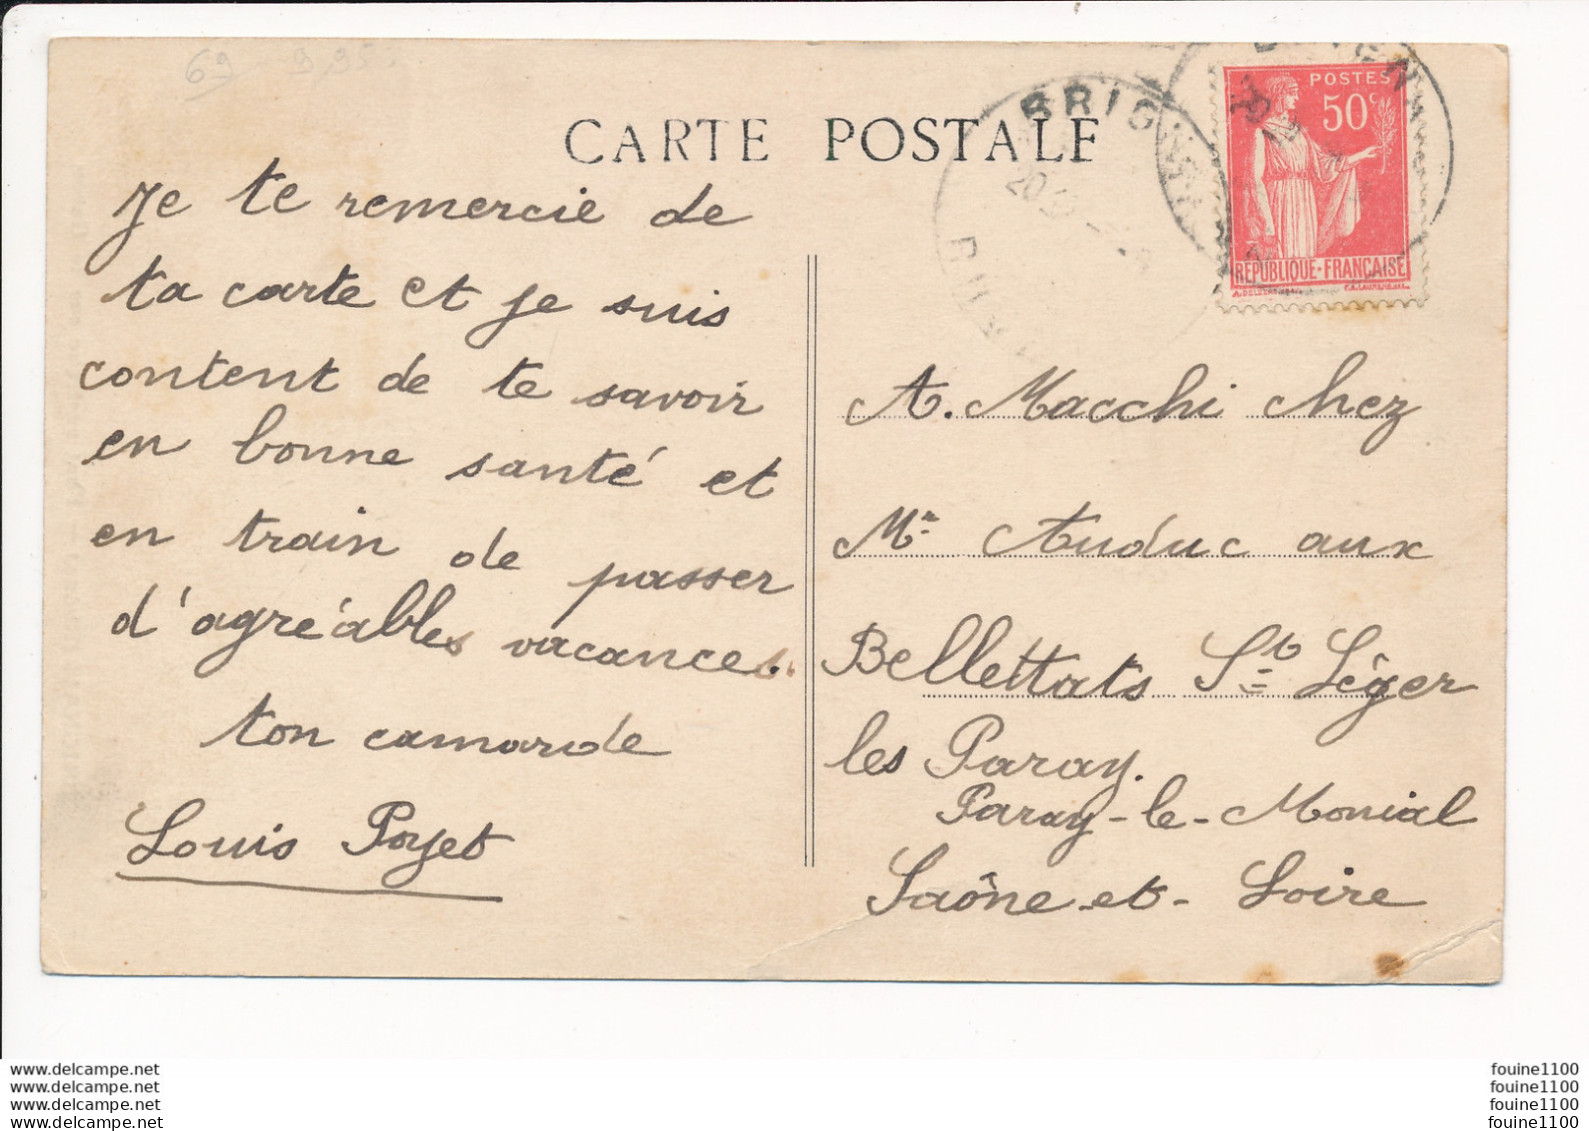 69 9,95
CARTE POSTALE
Je te remercie de
ta carte et je suis
content de te savoir
en bonne santé et
en train de passer
d'agréables vacances.
ton camarade
Louis Poyet
BRIG
POSTES
50c
REPUBLIQUE-FRANÇAISE
A. Macchi chez
Mr Auduc aux
Bellettats St Léger
les Paray.
Paray-le-Monial
Saône-et-Loire
www.delcampe.net
www.delcampe.net
www.delcampe.net
www.delcampe.net
fouine1100
fouine1100
fouine1100
fouine1100